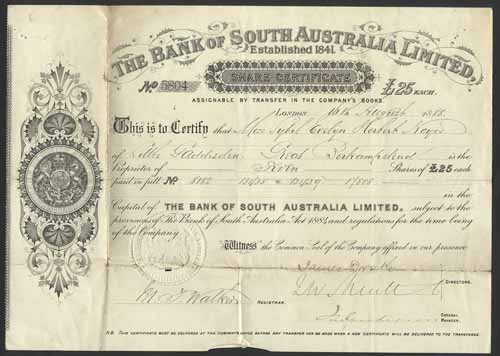 THE BANK OF SOUTH AUSTRALIA LIMITED.
Established 1841.
SHARE CERTIFICATE
No 5804
£25 EACH.
ASSIGNABLE BY TRANSFER IN THE COMPANY'S BOOKS.
LONDON 13th August 1888.
This is to Certify that Miss Sybil Evelyn Herbert
of Little Gaddesden, Great Berkhampstead is the
Proprietor of Shares of £25 each
paid in full No.
in the
Capital of THE BANK OF SOUTH AUSTRALIA LIMITED, subject to the
provisions of The Bank of South Australia Act 1884, and regulations for the time being
of the Company.
Witness the Common Seal of the Company affixed in our presence
DIRECTORS.
REGISTRAR.
GENERAL
MANAGER.
N.B. THIS CERTIFICATE MUST BE DELIVERED AT THE COMPANY'S OFFICE BEFORE ANY TRANSFER CAN BE MADE WHEN A NEW CERTIFICATE WILL BE DELIVERED TO THE TRANSFEREE.